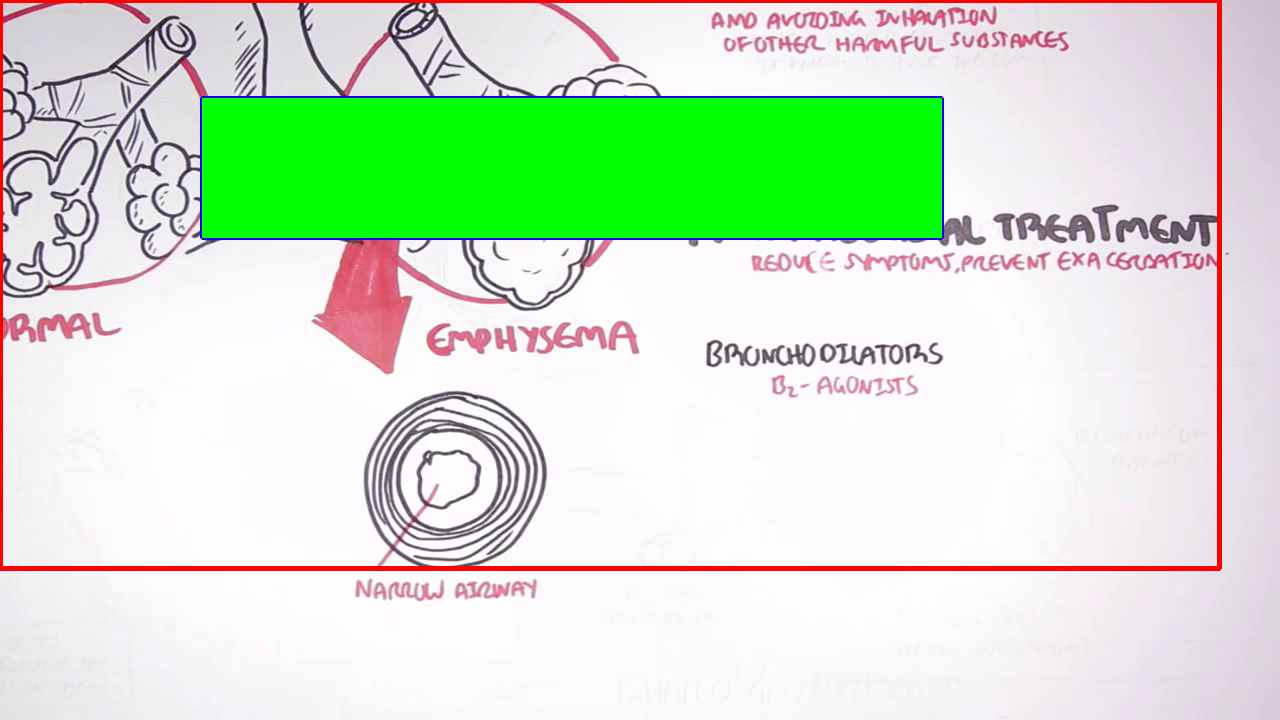 AND AVOIDING INHALATION
OF OTHER HARMFUL SUBSTANCES
TREATMENT
REDUCE SYMPTOMS, PREVENT EXACERBATION
ORMAL
EMPHYSEMA
BRONCHODILATORS
B2 - AGONISTS
NARROW AIRWAY